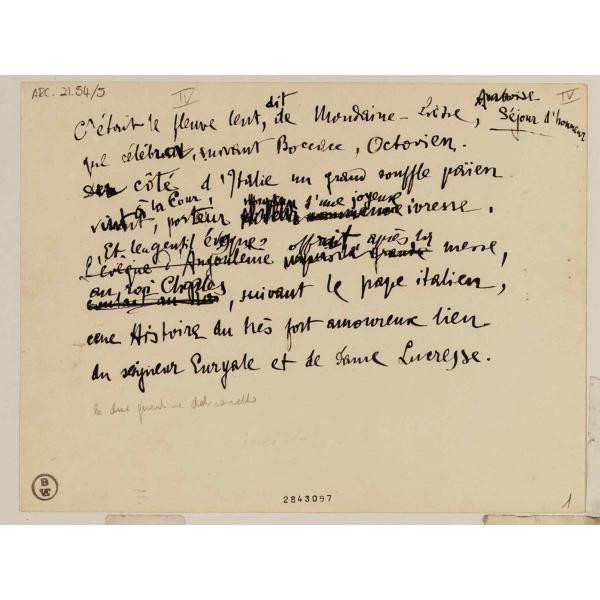 ABC. 21.54/5
IV
IV
C'était le fleuve lent, dit de Mondaine-Liesse, Amboise
Séjour d'honneur
que célébra, suivant Boccace, Octovien.
côté d'Italie un grand souffle païen
vint à la Cour, porteur d'une joyeuse ivresse.
Et le gentil évêque offrait après la messe,
L'évêque d'Angoulême
au roi Charles, suivant le pape italien,
une Histoire du très fort amoureux lien
du seigneur Euryale et de Dame Lucresse.
BVF
2843097
1